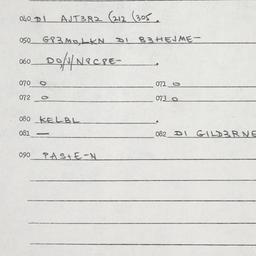 040 DI AJT3R2 (212 (305.
050 GP3MO,LKN DI B3HEJME-
060 DO/V/N9CPE-
070 O 071 O
072 O 073 O
080 KELBL
081 — 082 DI GILD3RNE
090 PASTE-N